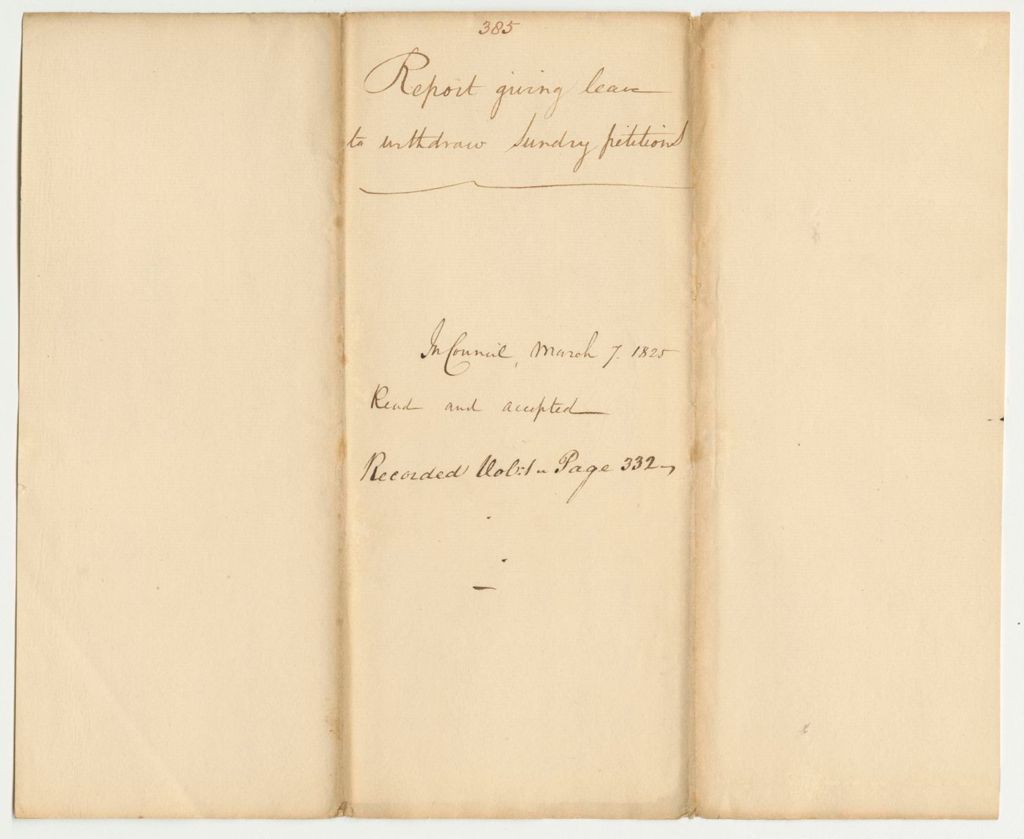 385
Report giving leave
to withdraw Sundry petitions
In Council, March 7. 1825
Read and accepted
Recorded Vol: 1 - Page 332